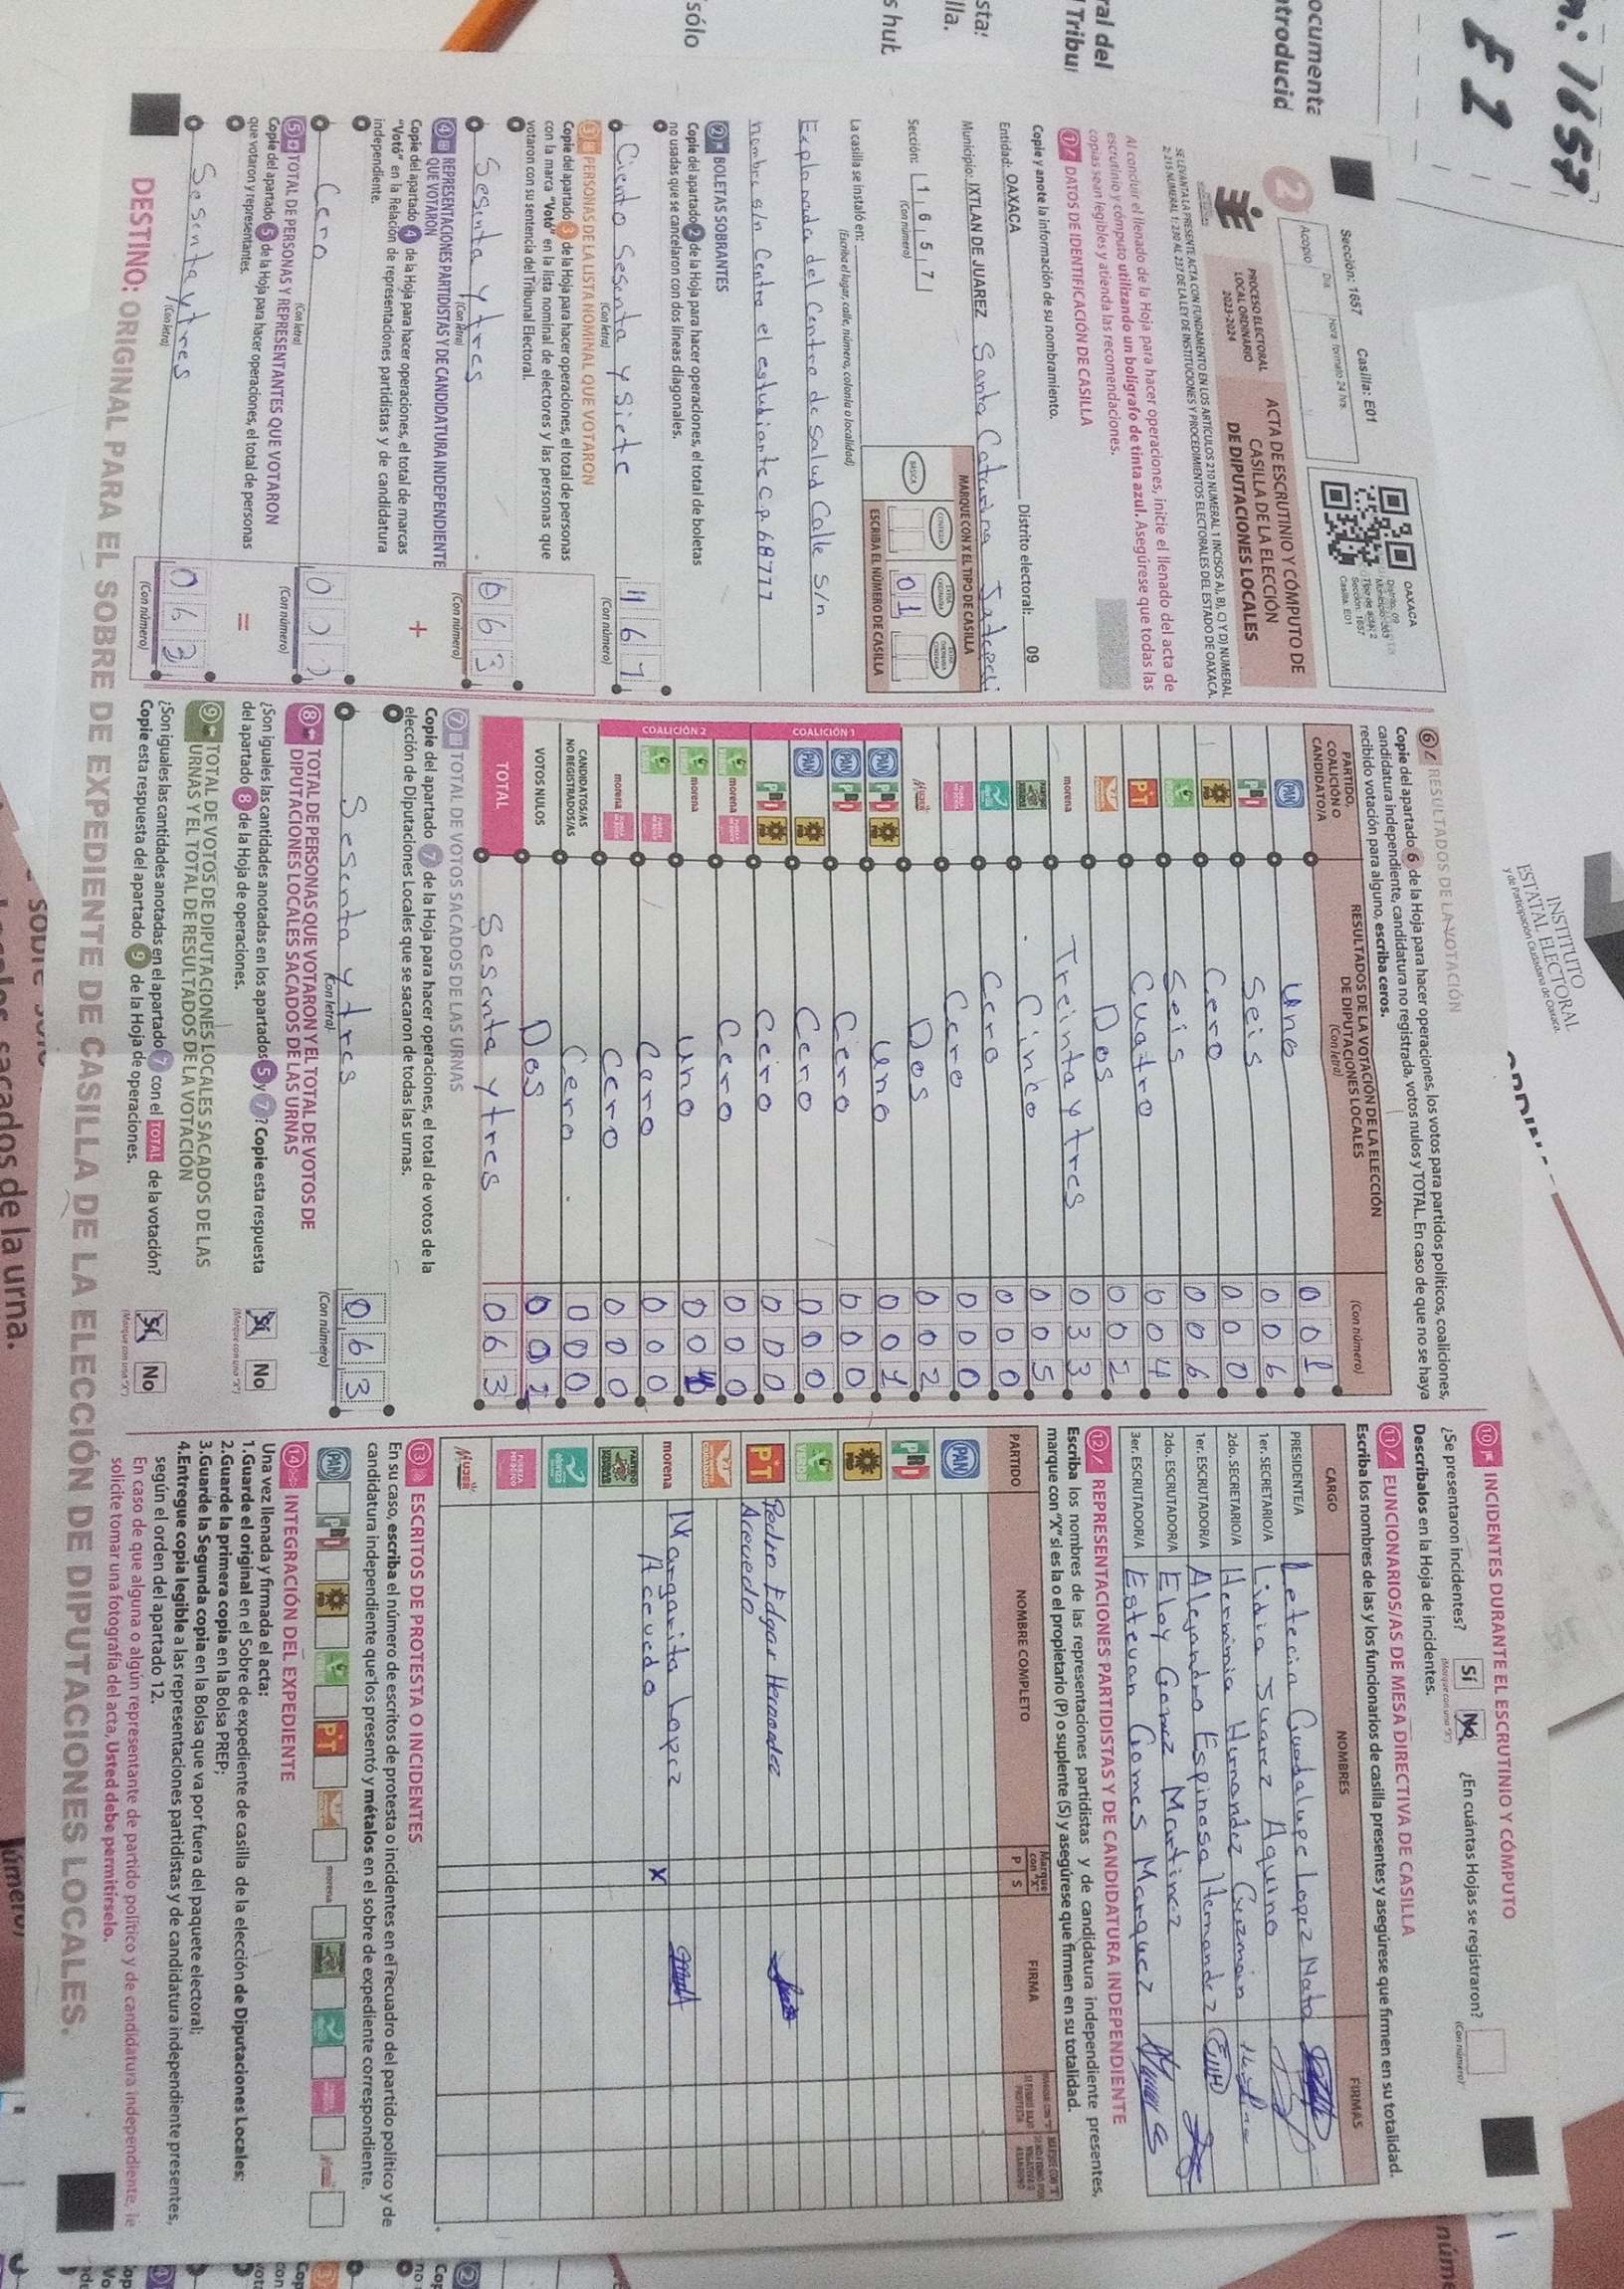 Sección: 1657 Casilla: E01
Acopio
Día Hora formato 24 hrs.
OAXACA
Sección: 1657
Casilla: E01
2
PROCESO ELECTORAL
LOCAL ORDINARIO
2023-2024
ACTA DE ESCRUTINIO Y CÓMPUTO DE
CASILLA DE LA ELECCIÓN
DE DIPUTACIONES LOCALES
SE LEVANTA LA PRESENTE ACTA CON FUNDAMENTO EN LOS ARTÍCULOS 210 NUMERAL 1 INCISOS A), B), C) Y D) NUMERAL
2; 215 NUMERAL 1; 230 AL 237 DE LA LEY DE INSTITUCIONES Y PROCEDIMIENTOS ELECTORALES DEL ESTADO DE OAXACA.
Al concluir el llenado de la Hoja para hacer operaciones, inicie el llenado del acta de
escrutinio y cómputo utilizando un bolígrafo de tinta azul. Asegúrese que todas las
copias sean legibles y atienda las recomendaciones.
1 DATOS DE IDENTIFICACIÓN DE CASILLA
Copie y anote la información de su nombramiento.
Entidad: OAXACA Distrito electoral: 09
Municipio: IXTLAN DE JUAREZ Santa Catarina
Sección: 1 6 5 7
(Con número)
MARQUE CON X EL TIPO DE CASILLA
BÁSICA
ESCRIBA EL NÚMERO DE CASILLA
0 1
La casilla se instaló en:
(Escriba el lugar, calle, número, colonia o localidad)
Explanada del Centro de Salud Calle S/n
nombre s/n Centro el estudiante C.P. 68777
2 BOLETAS SOBRANTES
Copie del apartado 2 de la Hoja para hacer operaciones, el total de boletas
no usadas que se cancelaron con dos líneas diagonales.
Ciento Sesenta y Siete 1 6 7
(Con letra) (Con número)
3 PERSONAS DE LA LISTA NOMINAL QUE VOTARON
Copie del apartado 3 de la Hoja para hacer operaciones, el total de personas
con la marca "Votó" en la lista nominal de electores y las personas que
votaron con su sentencia del Tribunal Electoral.
Sesenta y tres 0 6 3
(Con letra) (Con número)
4 REPRESENTACIONES PARTIDISTAS Y DE CANDIDATURA INDEPENDIENTE
QUE VOTARON
+
Copie del apartado 4 de la Hoja para hacer operaciones, el total de marcas
"Votó" en la Relación de representaciones partidistas y de candidatura
independiente.
Cero 0 0 0
(Con letra) (Con número)
5 TOTAL DE PERSONAS Y REPRESENTANTES QUE VOTARON
=
Copie del apartado 5 de la Hoja para hacer operaciones, el total de personas
que votaron y representantes.
Sesenta y tres 0 6 3
(Con letra) (Con número)
6 RESULTADOS DE LA VOTACIÓN
Copie del apartado 6 de la Hoja para hacer operaciones, los votos para partidos políticos, coaliciones,
candidatura independiente, candidatura no registrada, votos nulos y TOTAL. En caso de que no se haya
recibido votación para alguno, escriba ceros.
PARTIDO,
COALICIÓN O
CANDIDATO/A
RESULTADOS DE LA VOTACIÓN DE LA ELECCIÓN
DE DIPUTACIONES LOCALES
(Con letra)
(Con número)
PAN Uno 0 0 1
PRI Seis 0 0 6
PRD Cero 0 0 0
VERDE Seis 0 0 6
PT Cuatro 0 0 4
Dos 0 0 2
morena Treinta y tres 0 3 3
Cinco 0 0 5
Cero 0 0 0
Cero 0 0 0
Mujer Dos 0 0 2
COALICIÓN 1
PAN PRI PRD Uno 0 0 1
PAN PRI Cero 0 0 0
PAN PRD Cero 0 0 0
PRI PRD Ceiro 0 0 0
COALICIÓN 2
VERDE morena Cero 0 0 0
VERDE morena Uno 0 0
VERDE Cero 0 0 0
morena Cero 0 0 0
CANDIDATOS/AS
NO REGISTRADOS/AS Cero 0 0 0
VOTOS NULOS Dos 0 0 2
TOTAL Sesenta y tres 0 6 3
7 TOTAL DE VOTOS SACADOS DE LAS URNAS
Copie del apartado 7 de la Hoja para hacer operaciones, el total de votos de la
elección de Diputaciones Locales que se sacaron de todas las urnas.
Sesenta y tres 0 6 3
(Con letra) (Con número)
8 TOTAL DE PERSONAS QUE VOTARON Y EL TOTAL DE VOTOS DE
DIPUTACIONES LOCALES SACADOS DE LAS URNAS
¿Son iguales las cantidades anotadas en los apartados 5 y 7? Copie esta respuesta
del apartado 8 de la Hoja de operaciones.
Sí No
(Marque con una "X")
9 TOTAL DE VOTOS DE DIPUTACIONES LOCALES SACADOS DE LAS
URNAS Y EL TOTAL DE RESULTADOS DE LA VOTACIÓN
¿Son iguales las cantidades anotadas en el apartado 7 con el TOTAL de la votación?
Copie esta respuesta del apartado 9 de la Hoja de operaciones.
Sí No
(Marque con una "X")
10 INCIDENTES DURANTE EL ESCRUTINIO Y CÓMPUTO
¿Se presentaron incidentes? Sí No ¿En cuántas Hojas se registraron?
(Marque con una "X") (Con número)
Descríbalos en la Hoja de incidentes.
11 FUNCIONARIOS/AS DE MESA DIRECTIVA DE CASILLA
Escriba los nombres de las y los funcionarios de casilla presentes y asegúrese que firmen en su totalidad.
CARGO NOMBRES FIRMAS
PRESIDENTE/A Leteccia Guadalupe Lopez Nato
1er. SECRETARIO/A Lidia Juarez Aquino
2do. SECRETARIO/A Herminia Hernandez Guzman
1er. ESCRUTADOR/A Alejandro Espinosa Hernandez
2do. ESCRUTADOR/A Eloy Gomez Martinez
3er. ESCRUTADOR/A Estevan Gomes Marquez
12 REPRESENTACIONES PARTIDISTAS Y DE CANDIDATURA INDEPENDIENTE
Escriba los nombres de las representaciones partidistas y de candidatura independiente presentes,
marque con "X" si es la o el propietario (P) o suplente (S) y asegúrese que firmen en su totalidad.
PARTIDO NOMBRE COMPLETO Marque con "X" P S FIRMA
PAN
PRI
PRD
VERDE
PT Pedro Edgar Hernandez
Acevedo
morena Margarita Lopez
Acevedo X
Mujer
13 ESCRITOS DE PROTESTA O INCIDENTES
En su caso, escriba el número de escritos de protesta o incidentes en el recuadro del partido político y de
candidatura independiente que los presentó y métalos en el sobre de expediente correspondiente.
PAN PRI PRD VERDE PT morena
14 INTEGRACIÓN DEL EXPEDIENTE
Una vez llenada y firmada el acta:
1.Guarde el original en el Sobre de expediente de casilla de la elección de Diputaciones Locales;
2.Guarde la primera copia en la Bolsa PREP;
3.Guarde la Segunda copia en la Bolsa que va por fuera del paquete electoral;
4.Entregue copia legible a las representaciones partidistas y de candidatura independiente presentes,
según el orden del apartado 12.
En caso de que alguna o algún representante de partido político y de candidatura independiente, le
solicite tomar una fotografía del acta, Usted debe permitírselo.
DESTINO: ORIGINAL PARA EL SOBRE DE EXPEDIENTE DE CASILLA DE LA ELECCIÓN DE DIPUTACIONES LOCALES.
INSTITUTO
ESTATAL ELECTORAL
y de Participación Ciudadana de Oaxaca
: 1657
E 1
sacados de la urna.